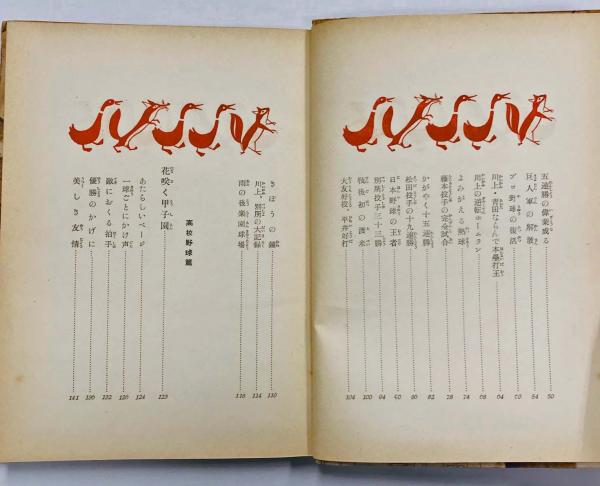 五連勝の偉業成る 50
巨人軍の解散 54
プロ野球の復活 60
川上・青田ならんで本塁打王 64
川上の逆転ホームラン 68
よみがえる熱球 74
藤本投手の完全試合 78
かがやく十五連勝 82
松田投手の十九連勝
日本野球の王者 90
別所投手三十三勝 94
戦後初の渡米 100
大友好投、平井好打 104
きぼうの鐘 110
川上、別所の大記録 114
雨の後楽園球場 118
高校野球篇
花咲く甲子園 123
あたらしいページ 124
一球ごとにかけ声 128
敵におくる拍手 132
優勝のかげに 136
美しき友情 141